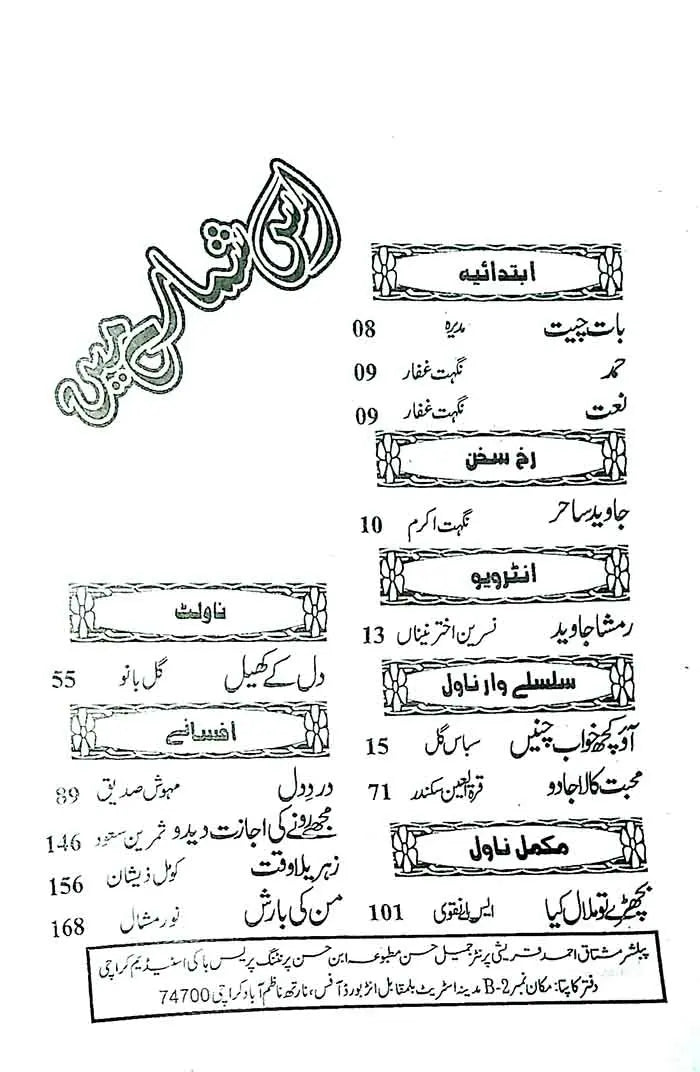 اس شمارے میں
ابتدائیہ
بات چیت مدیرہ 08
حمد نگہت غفار 09
نعت نگہت غفار 09
رخ سخن
جاوید ساحر نگہت اکرم 10
انٹرویو
رمشا جاوید نسرین اختر نیناں 13
سلسلے وار ناول
آؤ کچھ خواب چنیں سباس گل 15
محبت کالا جادو قرۃ العین سکندر 71
مکمل ناول
بچھڑے تو ملال کیا ایس اے نقوی 101
ناولٹ
دل کے کھیل گل بانو 55
افسانے
درد دل مہوش صدیق 89
مجھے رونے کی اجازت دیدو ثمرین سعود 146
زہریلا وقت کومل ذیشان 156
من کی بارش نور مشال 168
پبلشر مشتاق احمد قریشی پرنٹر جمیل حسن مطبوعہ ابن حسن پرنٹنگ پریس ہاکی اسٹیڈیم کراچی
دفتر کا پتا: مکان نمبر B-2 مدینہ اسٹریٹ بلمقابل انٹر بورڈ آفس، نارتھ ناظم آباد کراچی 74700